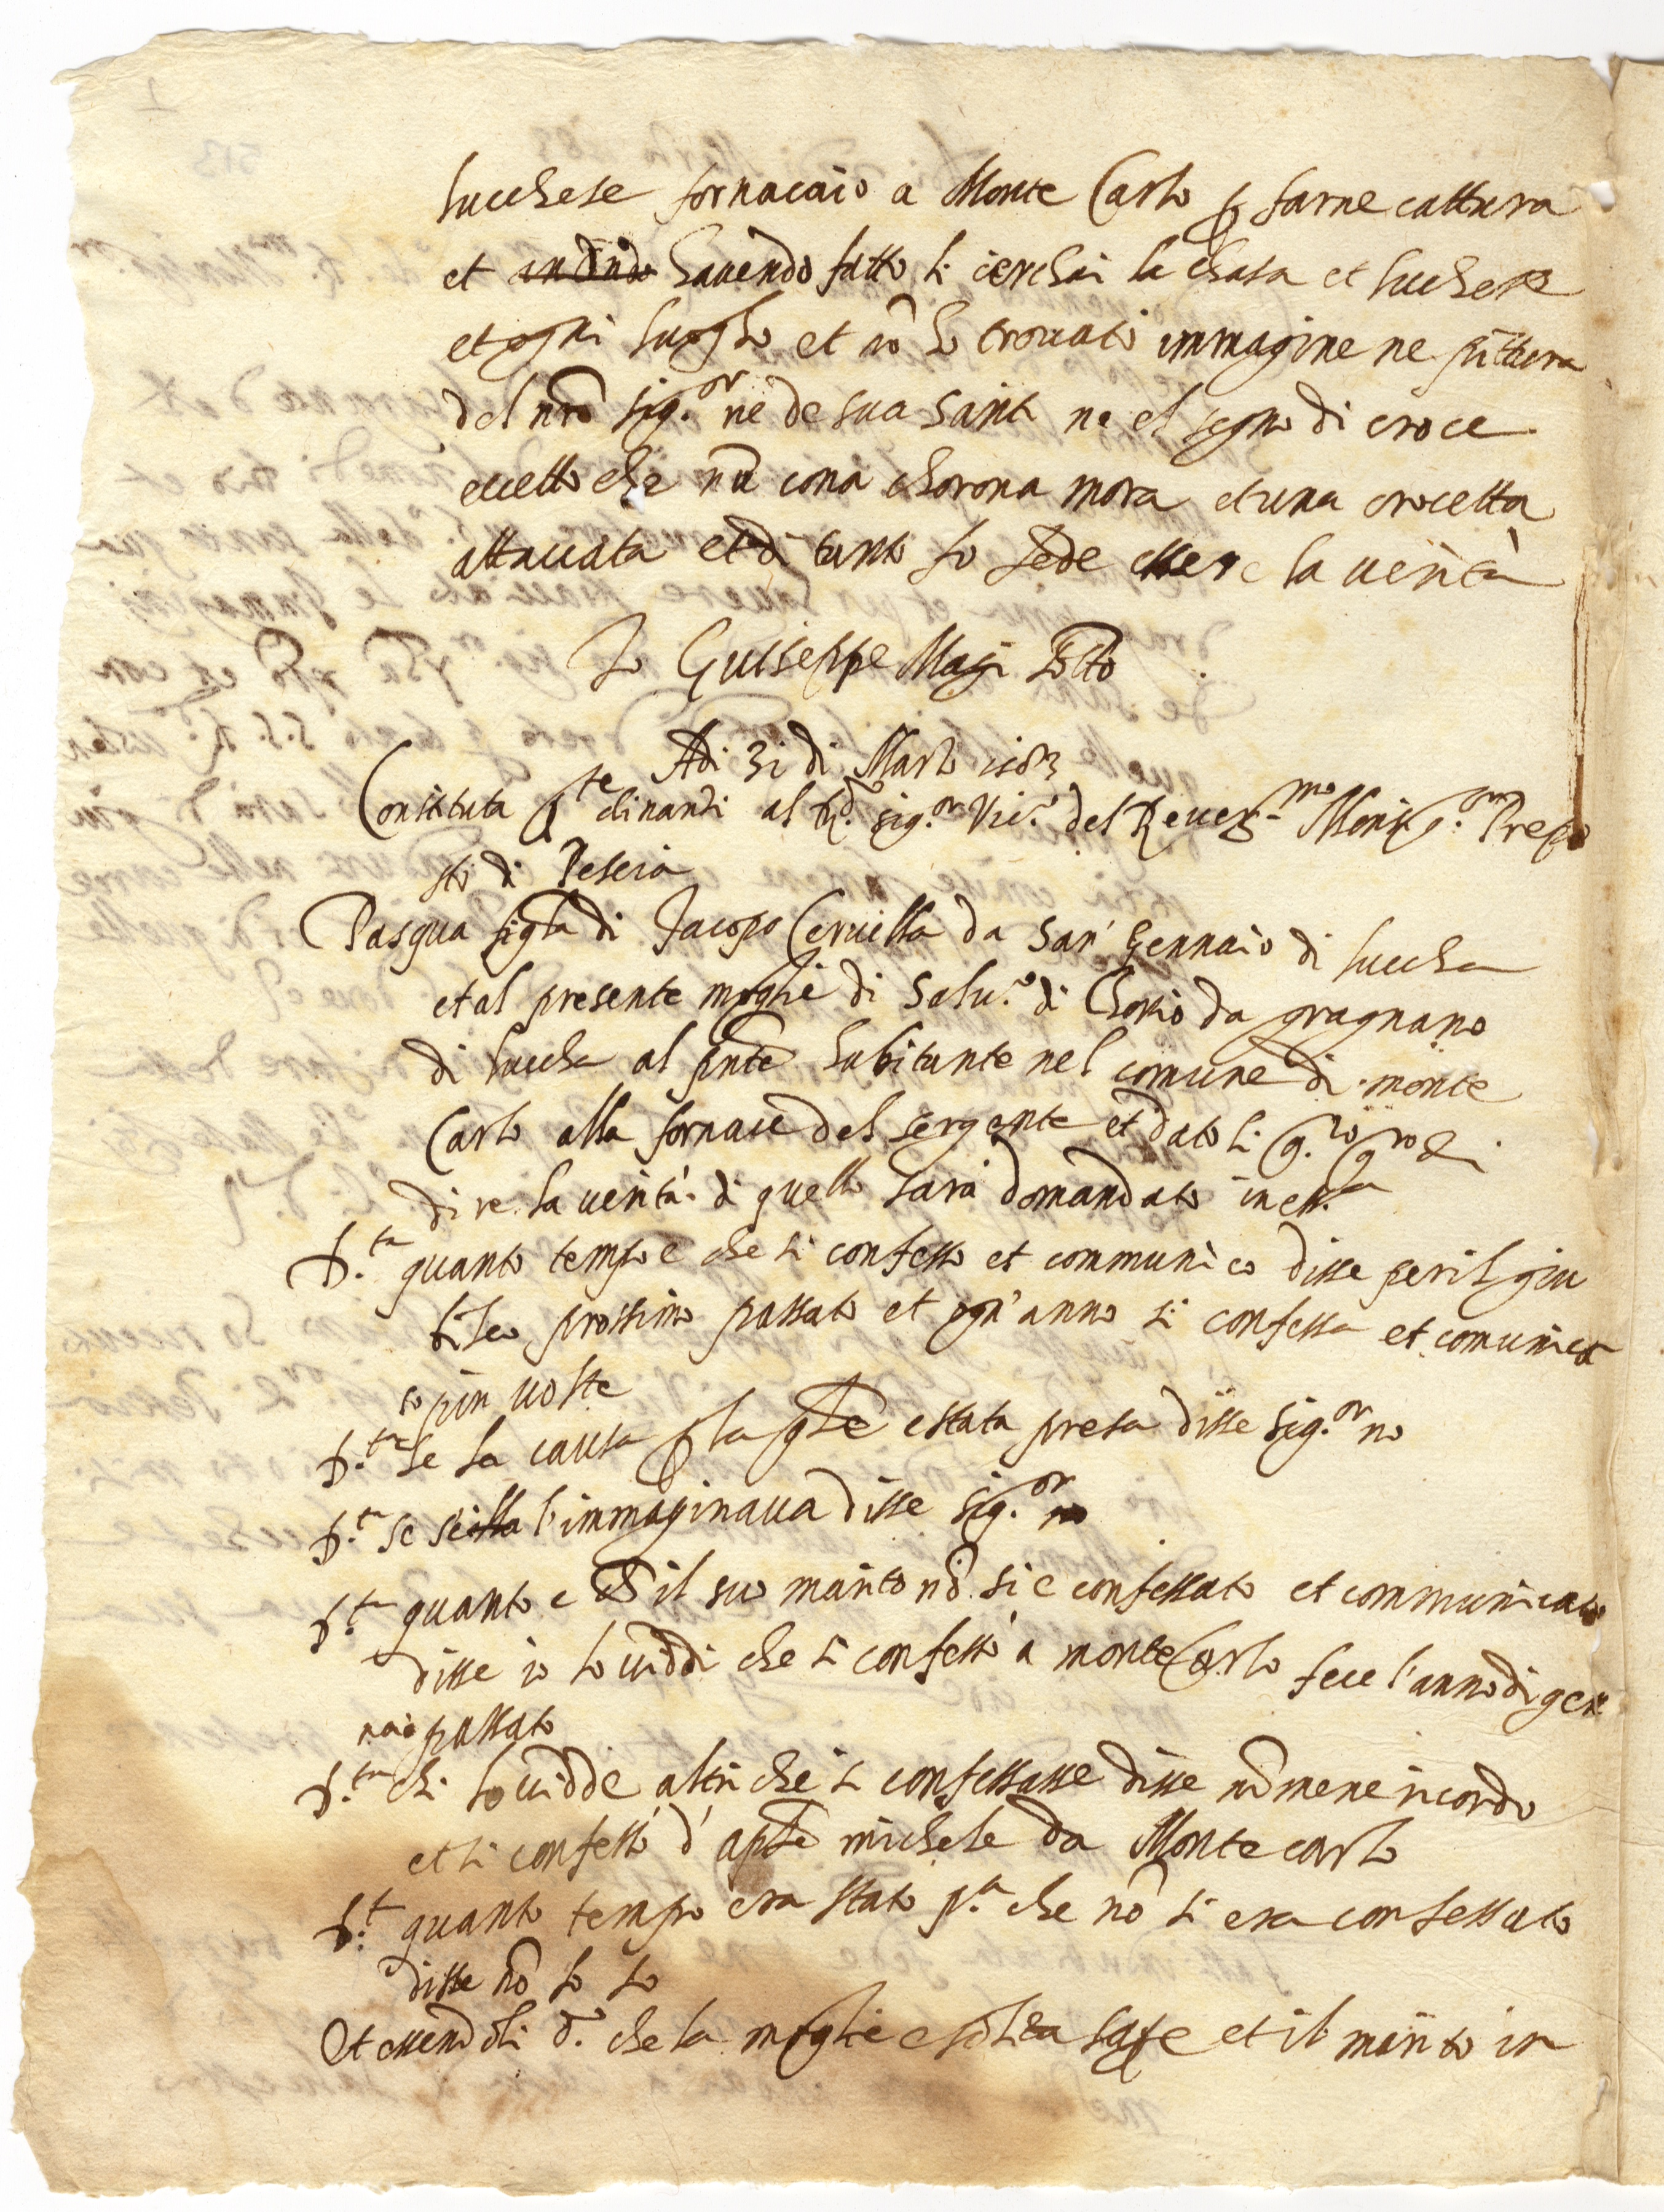 lucchese fornacaio a Monte Carlo p farne cattura
et havendo fatto li cerchai la chasa et luchese
et ogni luogho et nō ho trovato immagine ne pittura
del nrō sig.or ne de sua santi ne el segno di croce
eccetto che una chorona mora et una crocetta
attaccata et di tanto fo fede essere la verità
Io Guiseppe Magi
Adi 31 di Marzo 1583
Constituta p.te dinanzi al R.do sig.or Vic.o del Rever.mo Monsig.or Prepo
sto di Pescia
Pasqua figla di Jacopo Cervella da San Gennaio di luccha
et al presente moglie di Salv.o di Chorso da gragnano
di luccha al pnte habitante nel comune di monte
Carlo alla fornace del sergente et dato li g.ro di
dire la verità di quello sarà domandato
D.ta quanto tempo e che si confesso et communico disse per il giu
bileo prossimo passato et ogn'anno si confessa et comunica
o piu volte
D.ta se sa causa p la qle e stata presa disse sig.or no
D.ta se s'immaginava disse sig.or no
D.ta quanto e che il suo marito nō si e confessato et communicato
disse io lo viddi che si confessò a monte Carlo fece l'anno di gen
naio passato
D.ta chi lo vidde altri che si confessasse disse nō mene ricordo
et si confessò d' apte michele da Monte carlo
D.ta quanto tempo era stato p.a che nō si era confessato
disse nō lo so
Et essendoli d.o che la moglie e solita et il marito in